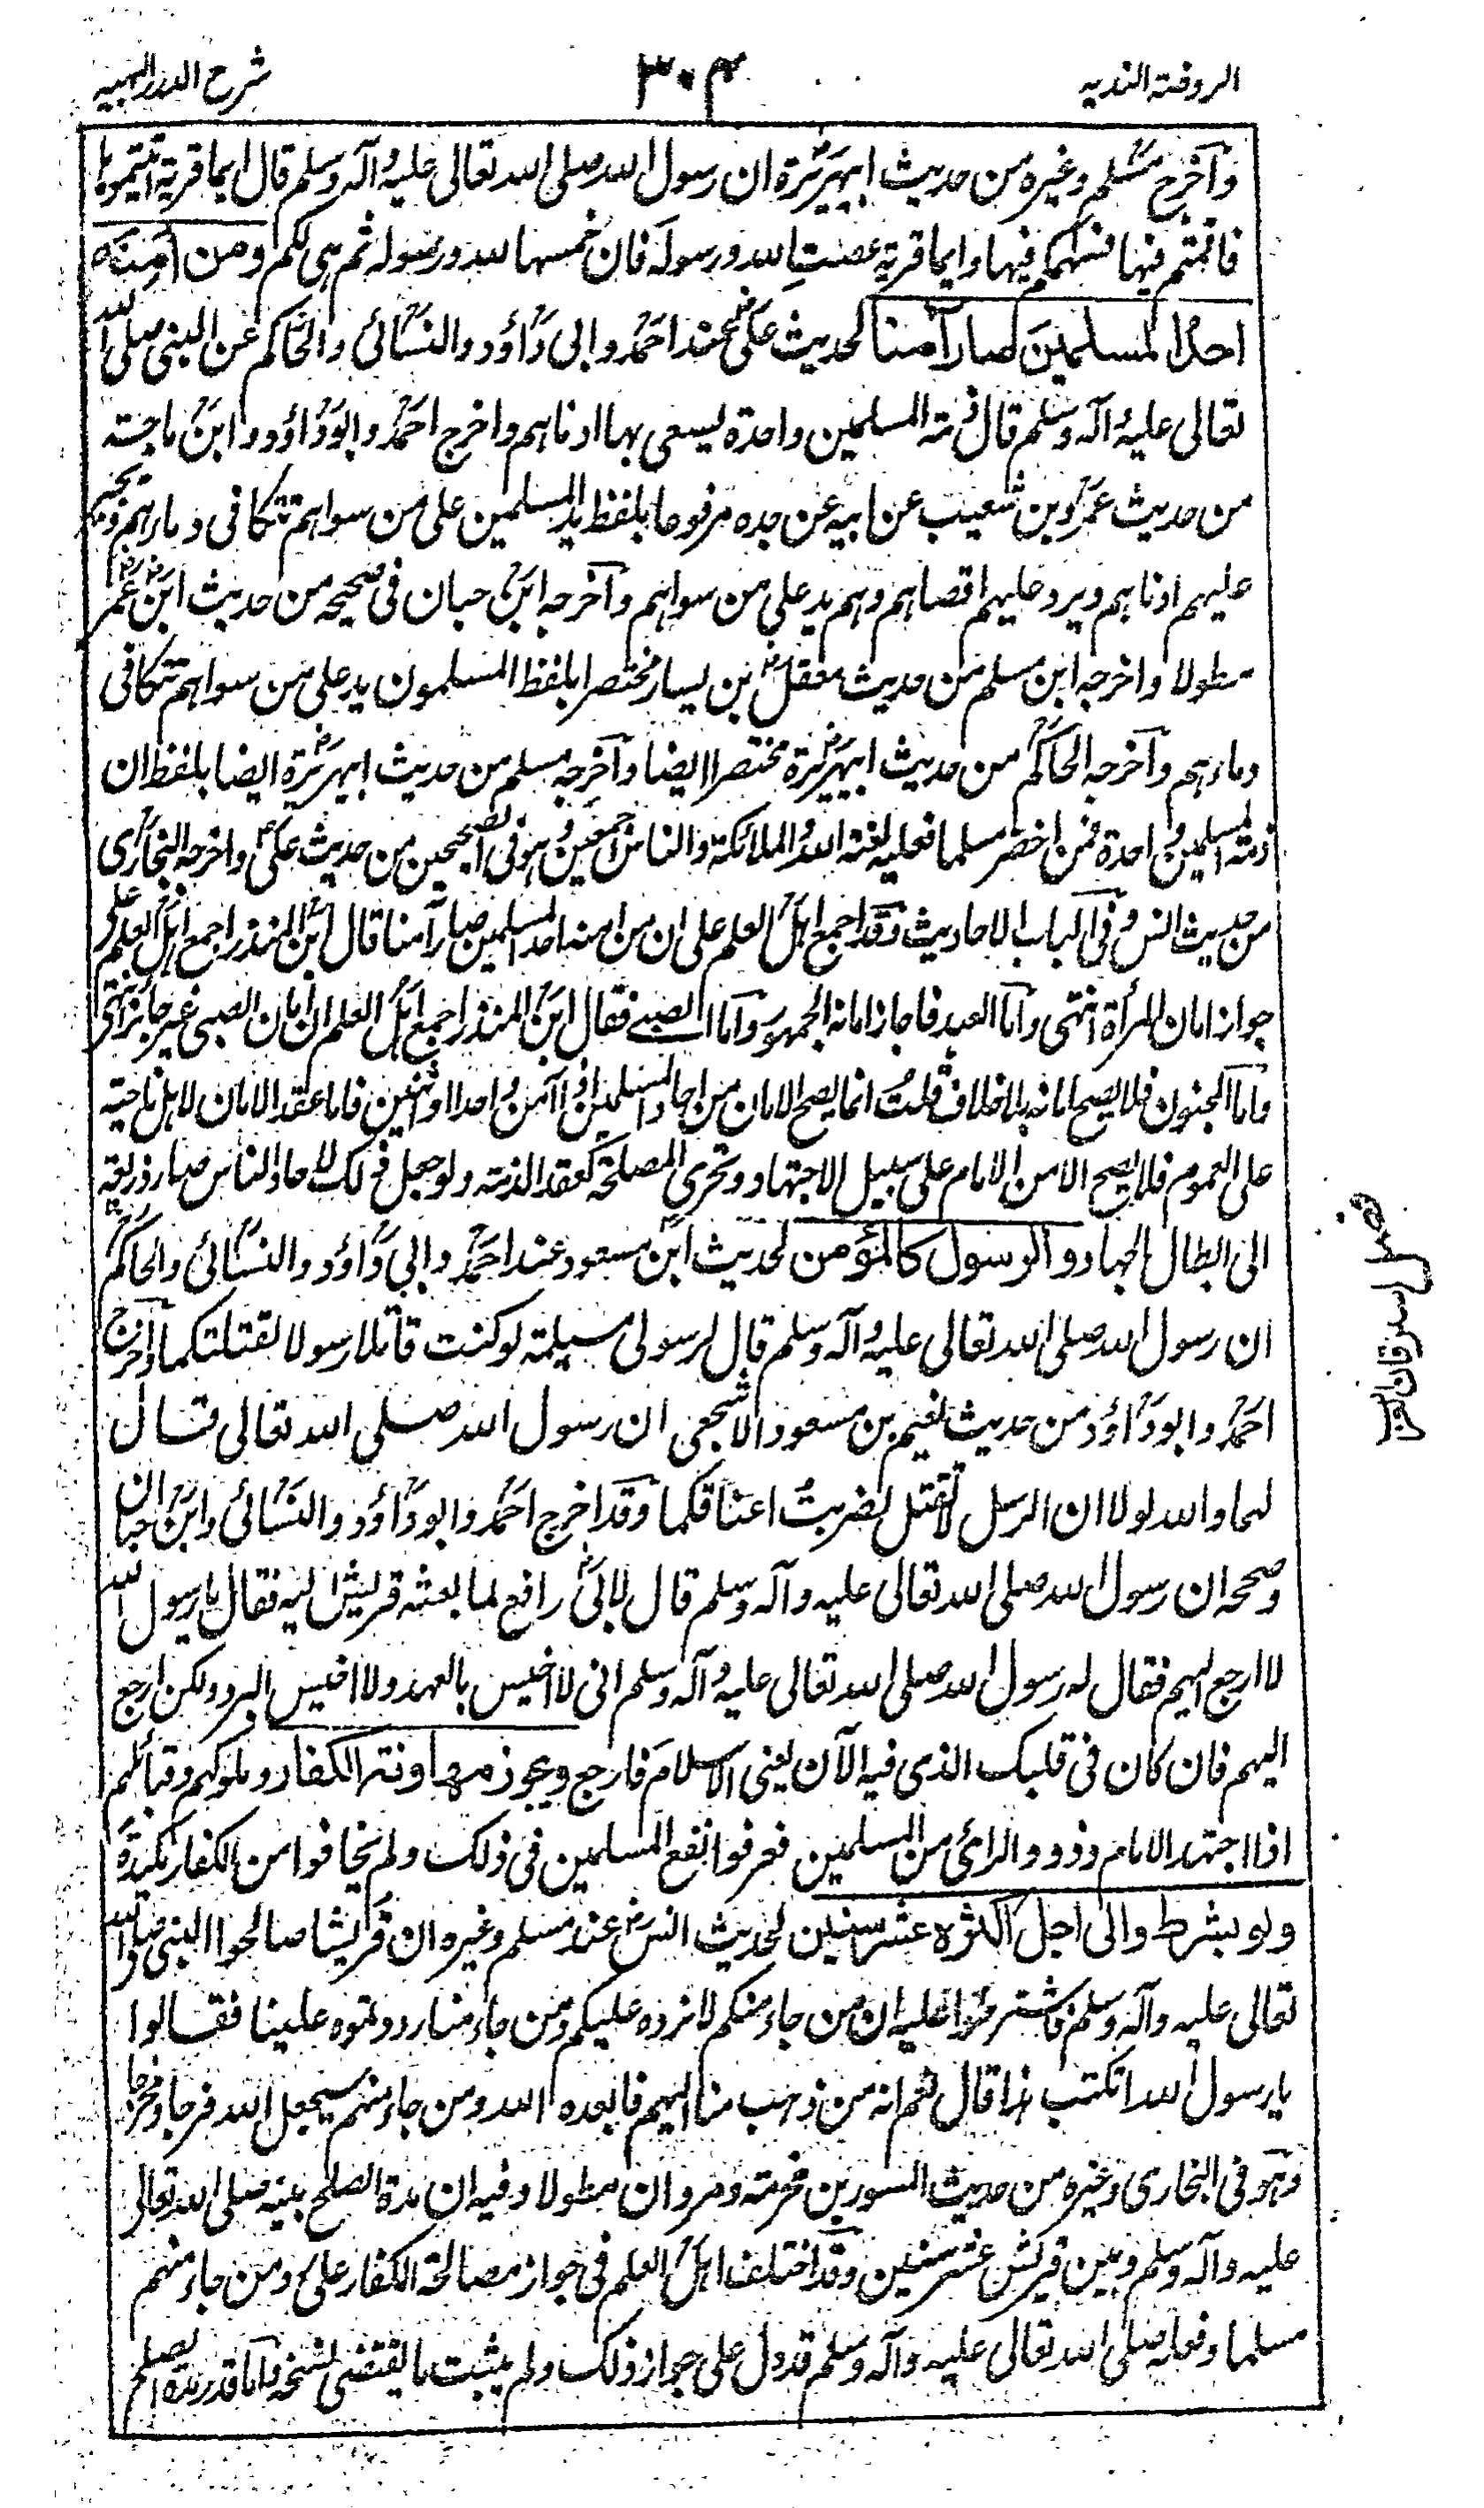 الروضة الندیه
۳۰۴
شرح الدرر البهیه
وآخرج مسلم وغیره من حدیث ابیهریرة ان رسول الله صلی الله تعالی علیه وآله وسلم قال ایما قریة اتیتموها
فاقمتم فیها فسهمکم فیها وایما قریة عصت الله ورسوله فان خمسها لله ورسوله ثم هی لکم ومن امنه
احد المسلمین صار آمنا لحدیث علی عند احمد وابی داؤد والنسائی والحاکم عن النبی صلی الله
تعالی علیه وآله وسلم قال ذمة المسلمین واحدة یسعی بها ادناهم واخرج احمد وابوداؤد وابن ماجة
من حدیث عمرو بن شعیب عن ابیه عن جده مرفوعا بلفظ ید المسلمین علی من سواهم تتکافی دماءهم ویجیر
علیهم ادناهم ویرد علیهم اقصاهم وهم ید علی من سواهم وآخرجه ابن حبان فی صحیحه من حدیث ابن عمر
مطولا واخرجه ابن مسلم من حدیث معقل بن یسار مختصرا بلفظ المسلمون ید علی من سواهم تتکافی
دماءهم وآخرجه الحاکم من حدیث ابیهریرة مختصرا ایضا وآخرجه مسلم من حدیث ابیهریرة ایضا بلفظ ان
ذمة المسلمین واحدة فمن اخفر مسلما فعلیه لعنة الله والملائکة والناس اجمعین وهو فی الصحیحین من حدیث علی واخرجه البخاری
من حدیث انس وفی الباب الاحادیث وقد اجمع اهل العلم علی ان من امنه احد المسلمین صار آمنا قال ابن المنذر اجمع اهل العلم علی
جواز امان المرأة انتهی واما العبد فاجاز امانه الجمهور واما الصبی فقال ابن المنذر اجمع اهل العلم ان امان الصبی غیر جائز انتهی
واما المجنون فلا یصح امانه بلا خلاف قلت انما یصح الامان من احاد المسلمین اذا آمن واحدا او اثنین فاما عقد الامان لاهل ناحیة
علی العموم فلا یصح الا من الامام علی سبیل الاجتهاد وتحری المصلحة کعقد الذمة ولو جعل ذلک لاحاد الناس صار ذریعة
الی ابطال الجهاد والرسول کالمؤمن لحدیث ابن مسعود عند احمد وابی داؤد والنسائی والحاکم
ان رسول الله صلی الله تعالی علیه وآله وسلم قال لرسولی مسیلمة لو کنت قاتلا رسولا لقتلتکما واخرج
احمد وابوداؤد من حدیث نعیم بن مسعود الاشجعی ان رسول الله صلی الله تعالی قال
لهما والله لولا ان الرسل لا تقتل لضربت اعناقکما وقد اخرج احمد وابوداؤد والنسائی وابن حبان
وصححه ان رسول الله صلی الله تعالی علیه وآله وسلم قال لابی رافع لما بعثه قریش الیه فقال یا رسول الله
لا ارجع الیهم فقال له رسول الله صلی الله تعالی علیه وآله وسلم انی لا اخیس بالعهد ولا احبس البرد ولکن ارجع
الیهم فان کان فی قلبک الذی فیه الآن یعنی الاسلام فارجع ویجوز مهادنة الکفار وملوکهم وقبائلهم
اذا اجتهد الامام وذوو الرائ من المسلمین فعرفوا نفع المسلمین فی ذلک ولم یخافوا من الکفار مکیدة
ولو بشرط والی اجل اکثره عشر سنین لحدیث انس عند مسلم وغیره ان قریشا صالحوا النبی صلی الله
تعالی علیه وآله وسلم فاشترطوا علیه ان من جاء منکم لا نرده علیکم ومن جاء منا رددتموه علینا فقالوا
یا رسول الله اتکتب هذا قال نعم انه من ذهب منا الیهم فابعده الله ومن جاء منهم سیجعل الله فرجا ومخرجا
وهو فی البخاری وغیره من حدیث المسور بن مخرمة ومروان مطولا وفیه ان مدة الصلح بینه صلی الله تعالی
علیه وآله وسلم وبین قریش عشر سنین وقد اختلف اهل العلم فی جواز مصالحة الکفار علی رد من جاء منهم
مسلما وفعله صلی الله تعالی علیه وآله وسلم قد دل علی جواز ذلک ولم یثبت ما یقتضی نسخه واما قدر مدة الصلح